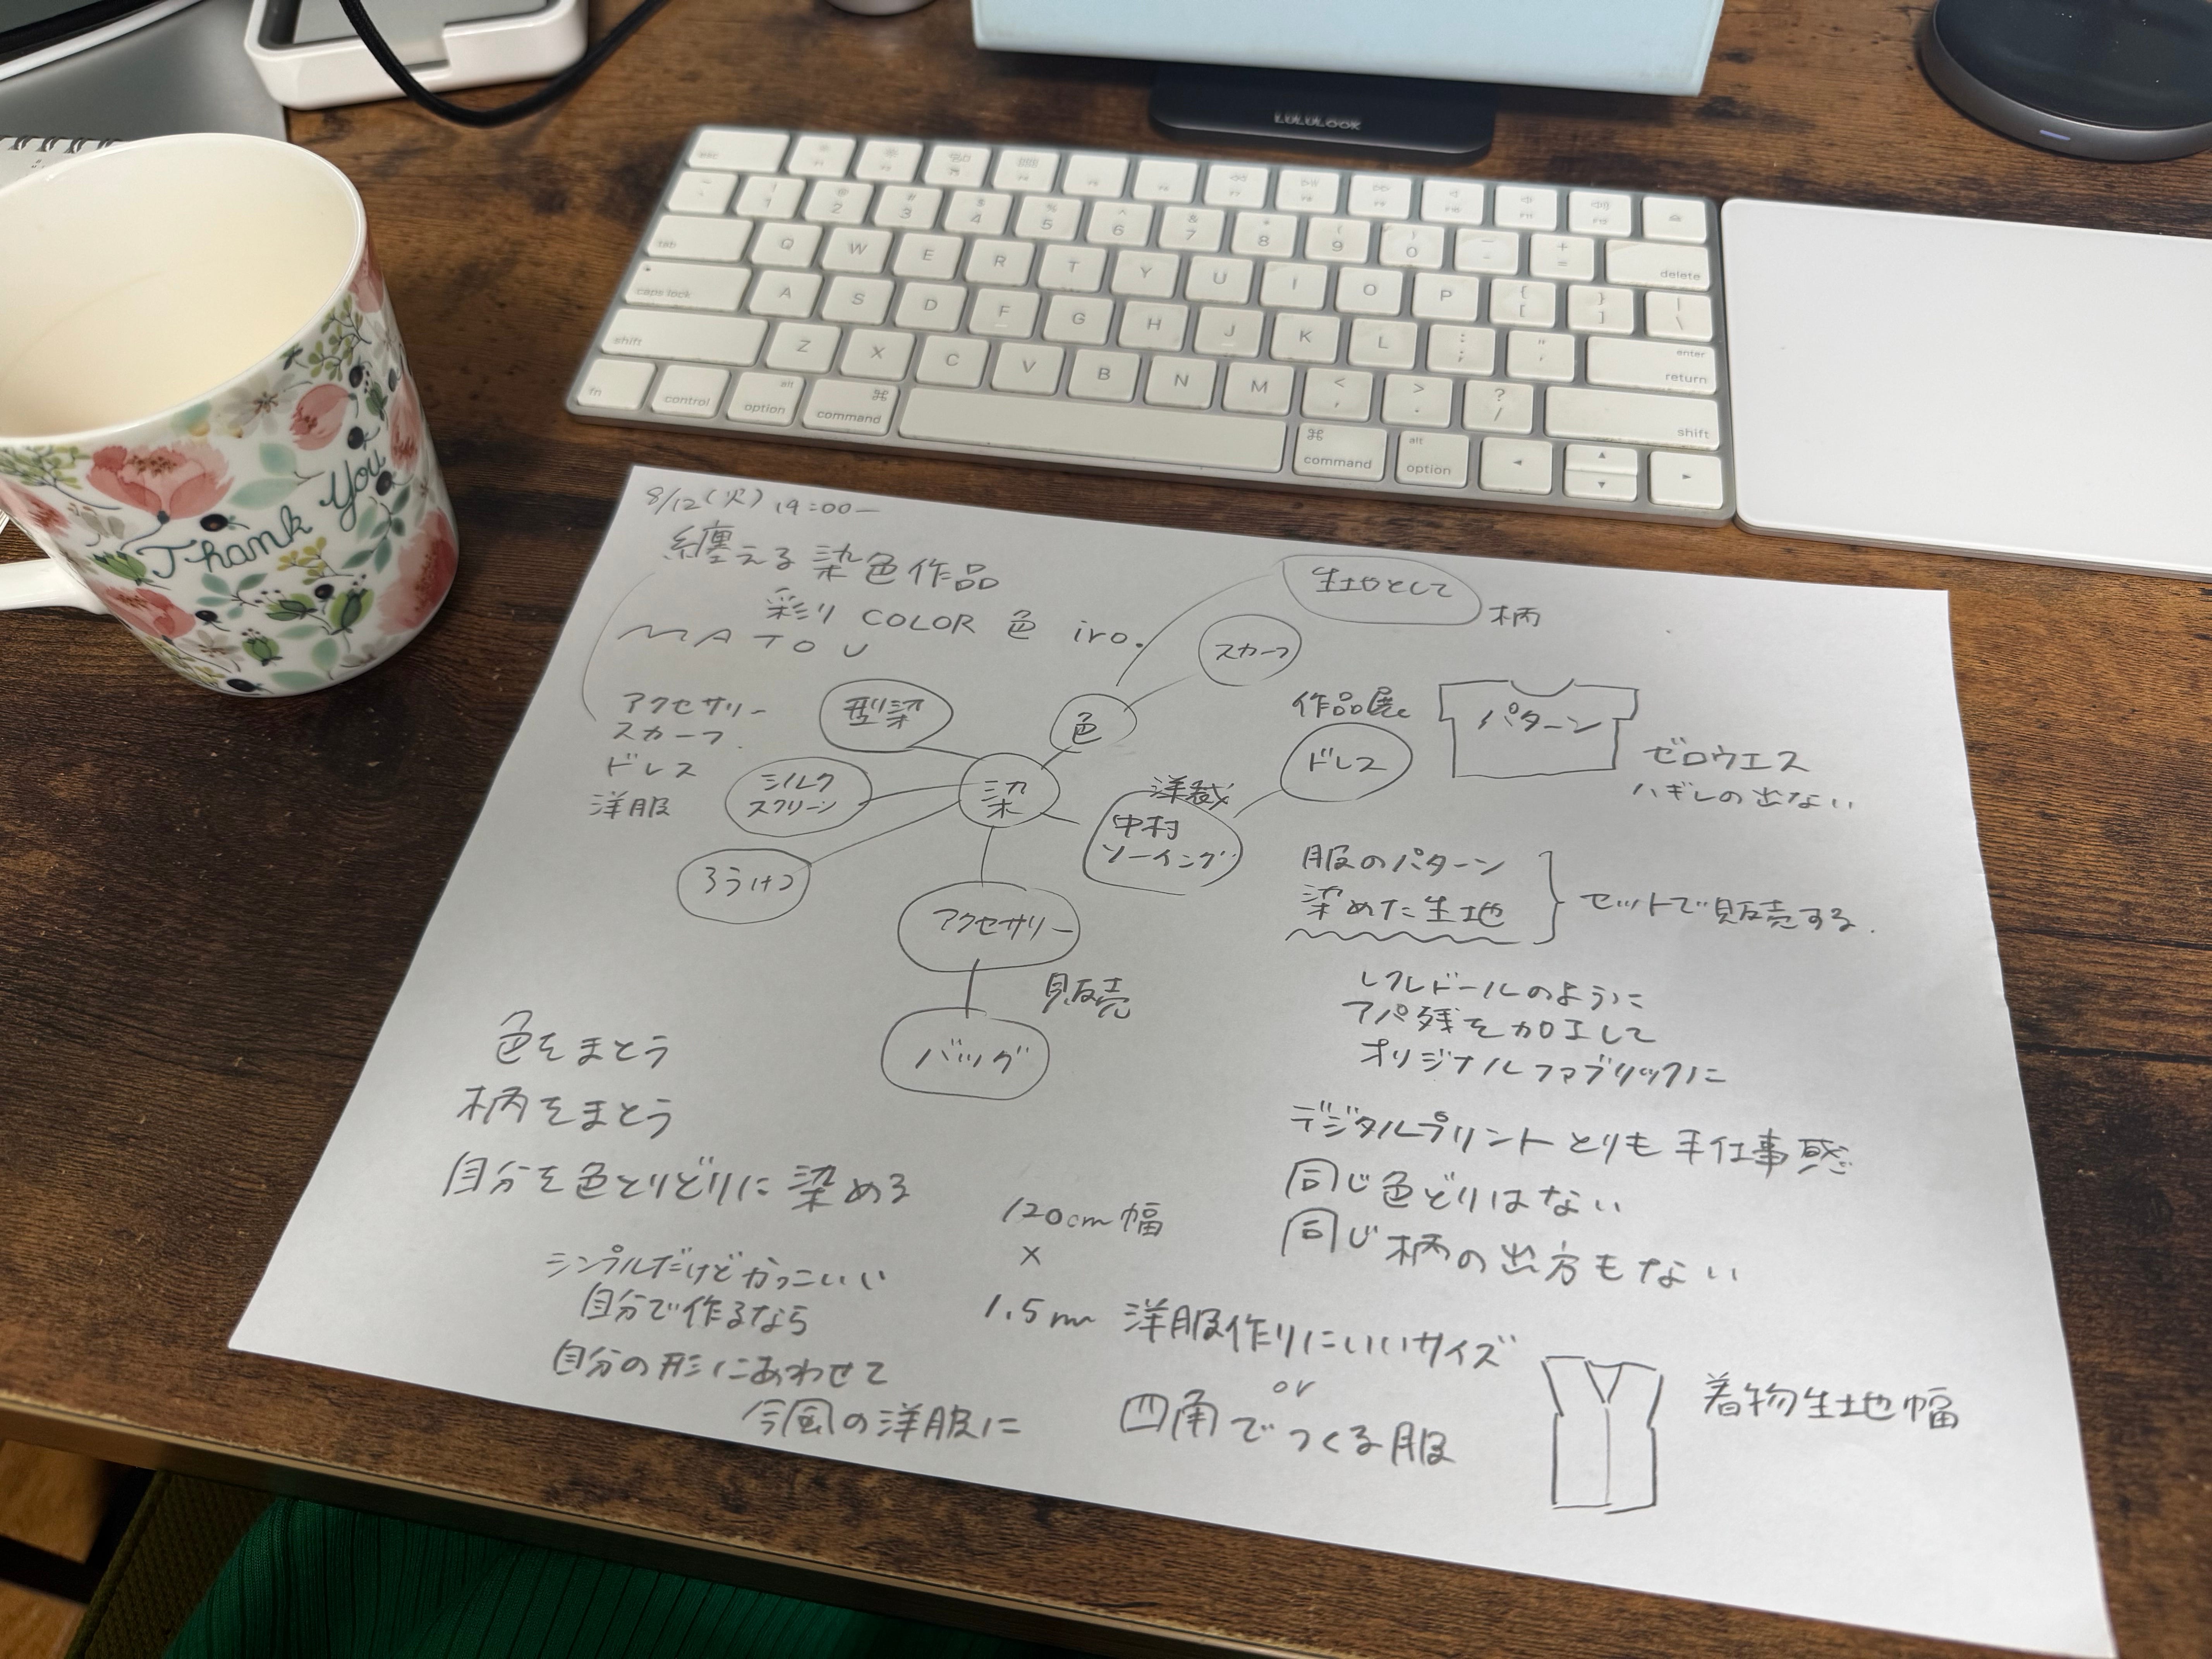 Thank You
LULULOOK
esc
1 2 3 4 5 6 7 8 9 0
delete
tab Q W E R T Y U I O P
caps lock A S D F G H J K L
enter
return
shift Z X C V B N M < , > . ? / shift
fn control alt option ⌘ command ⌘ command alt option
8/12(火) 19:00ー
纏える染色作品
彩り COLOR 色 iro.
MATOU
アクセサリー
スカーフ
ドレス
洋服
型染
シルク
スクリーン
ろうけつ
染
色
生地として
柄
スカーフ
洋裁
中村
ソーイング
作品展
ドレス
パターン
ゼロウエス
ハギレの出ない
アクセサリー
販売
バッグ
服のパターン
染めた生地
セットで販売する
レクレドールのように
アパ残を加工して
オリジナルファブリックに
デジタルプリントとりも手仕事感
同じ色どりはない
同じ柄の出方もない
色をまとう
柄をまとう
自分を色とりどりに染める
シンプルだけどかっこいい
自分で作るなら
自分の形にあわせて
今風の洋服に
120cm幅
×
1.5m 洋服作りにいいサイズ
or
四角でつくる服
着物生地幅